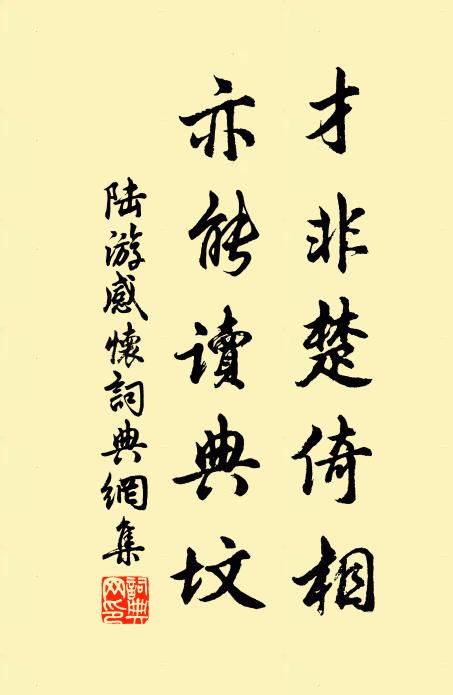 才非楚倚相
亦能讀典坟
陆游感懷詞典網集
詞典
网印